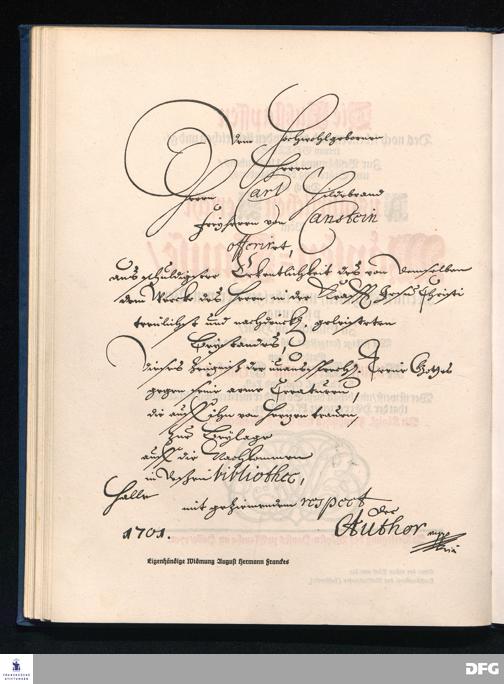 Dem Hochwohlgebornen
Herrn
Herrn Carl Hildebrand
Freyherrn von Canstein
offeriret,
aus schuldigster Erkentlichkeit des von demselben
dem Wercke des Herrn in der Krafft Jesu Christi
treulichst und nachdenckl. geleisteten
Beystandes,
dieses Zeugniß der unaussprechl. Treue Gottes
gegen seine arme Creaturen,
die auff ihn von Hertzen trauen
zur Beylage
auff die Nachkommen
in Dessen bibliothec,
Halle mit geziemendem respect
der
1701. Author
mppria
Eigenhändige Widmung August Hermann Franckes
FRANCKESCHE
STIFTUNGEN
DFG